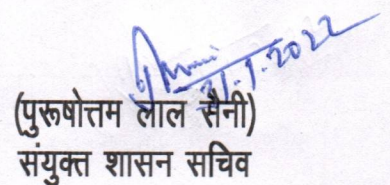 31.1.2022
(पुरूषोत्तम लाल सैनी)
संयुक्त शासन सचिव